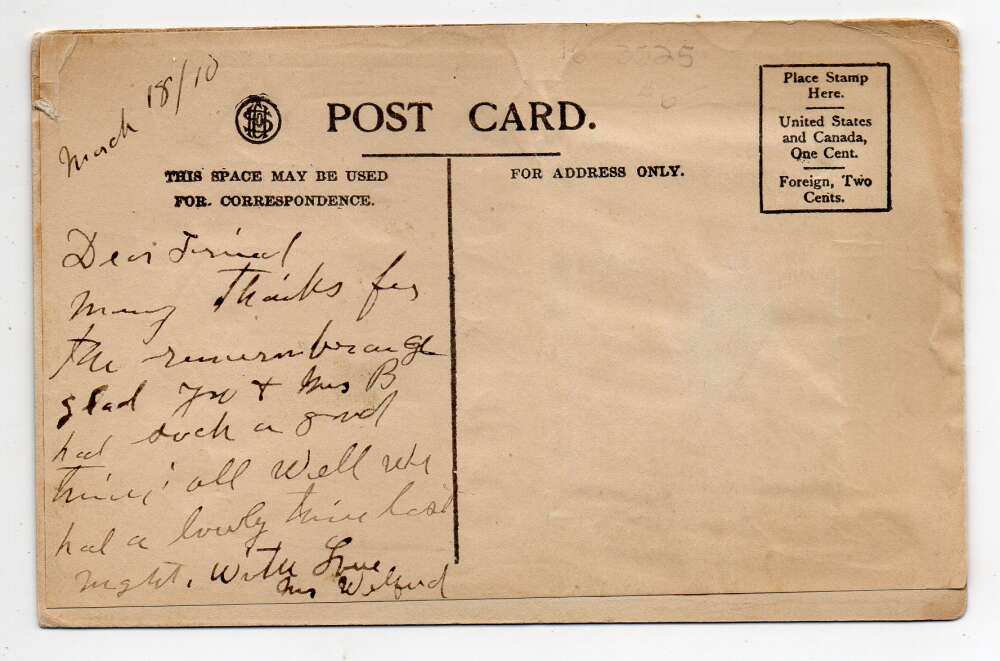 March 18/10
POST CARD.
THIS SPACE MAY BE USED
FOR CORRESPONDENCE.
FOR ADDRESS ONLY.
Place Stamp
Here.
United States
and Canada,
One Cent.
Foreign, Two
Cents.
3525
Dear Friend
Many thanks for
the remembrance
glad you + Mrs B
had such a good
time, all well we
had a lovely time last
night. With Love
Mrs Welford